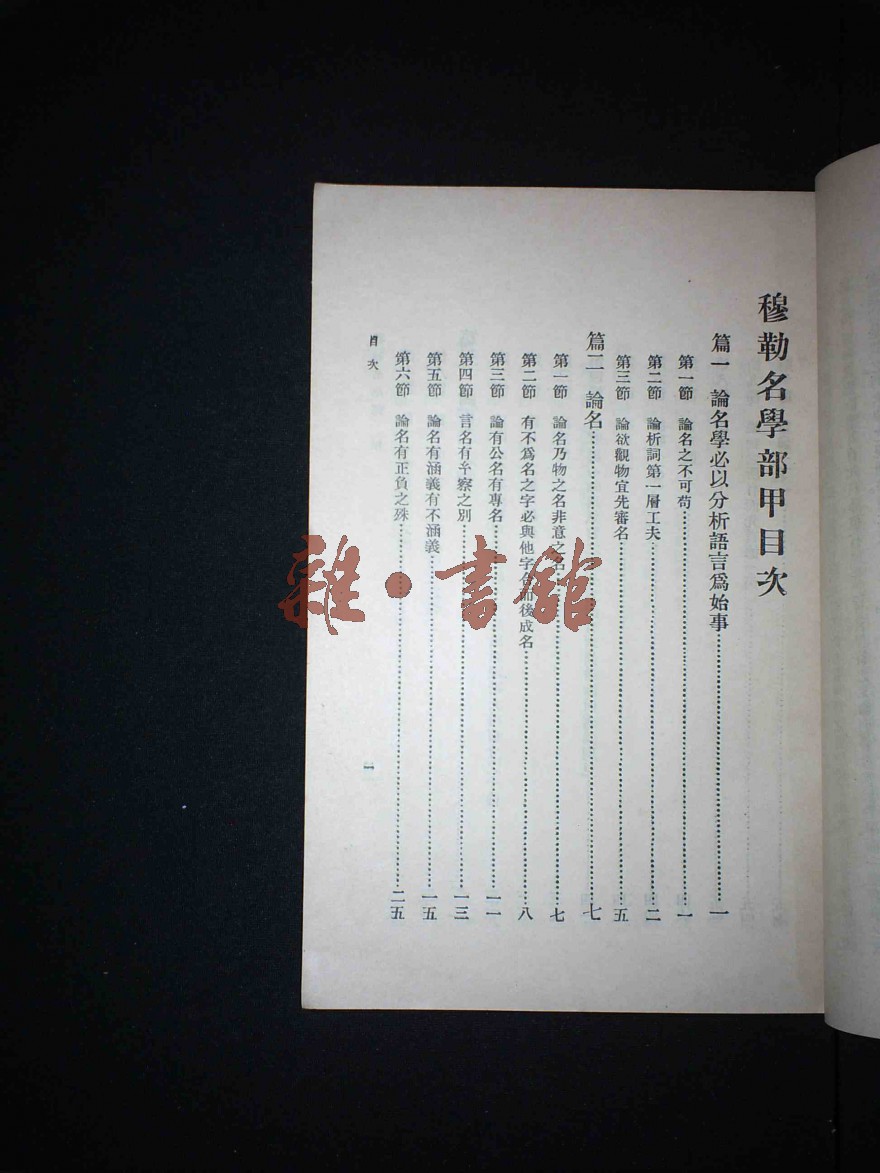 穆勒名學部甲目次
篇一　論名學必以分析語言爲始事……一
第一節　論名之不可苟……一
第二節　論析詞第一層工夫……二
第三節　論欲觀物宜先審名……五
篇二　論名……七
第一節　論名乃物之名非意之名……七
第二節　有不爲名之字必與他字合而後成名……八
第三節　論有公名有專名……一一
第四節　言名有𠫵察之別……一三
第五節　論名有涵義有不涵義……一五
第六節　論名有正負之殊……二五
目次
一
雜·書館